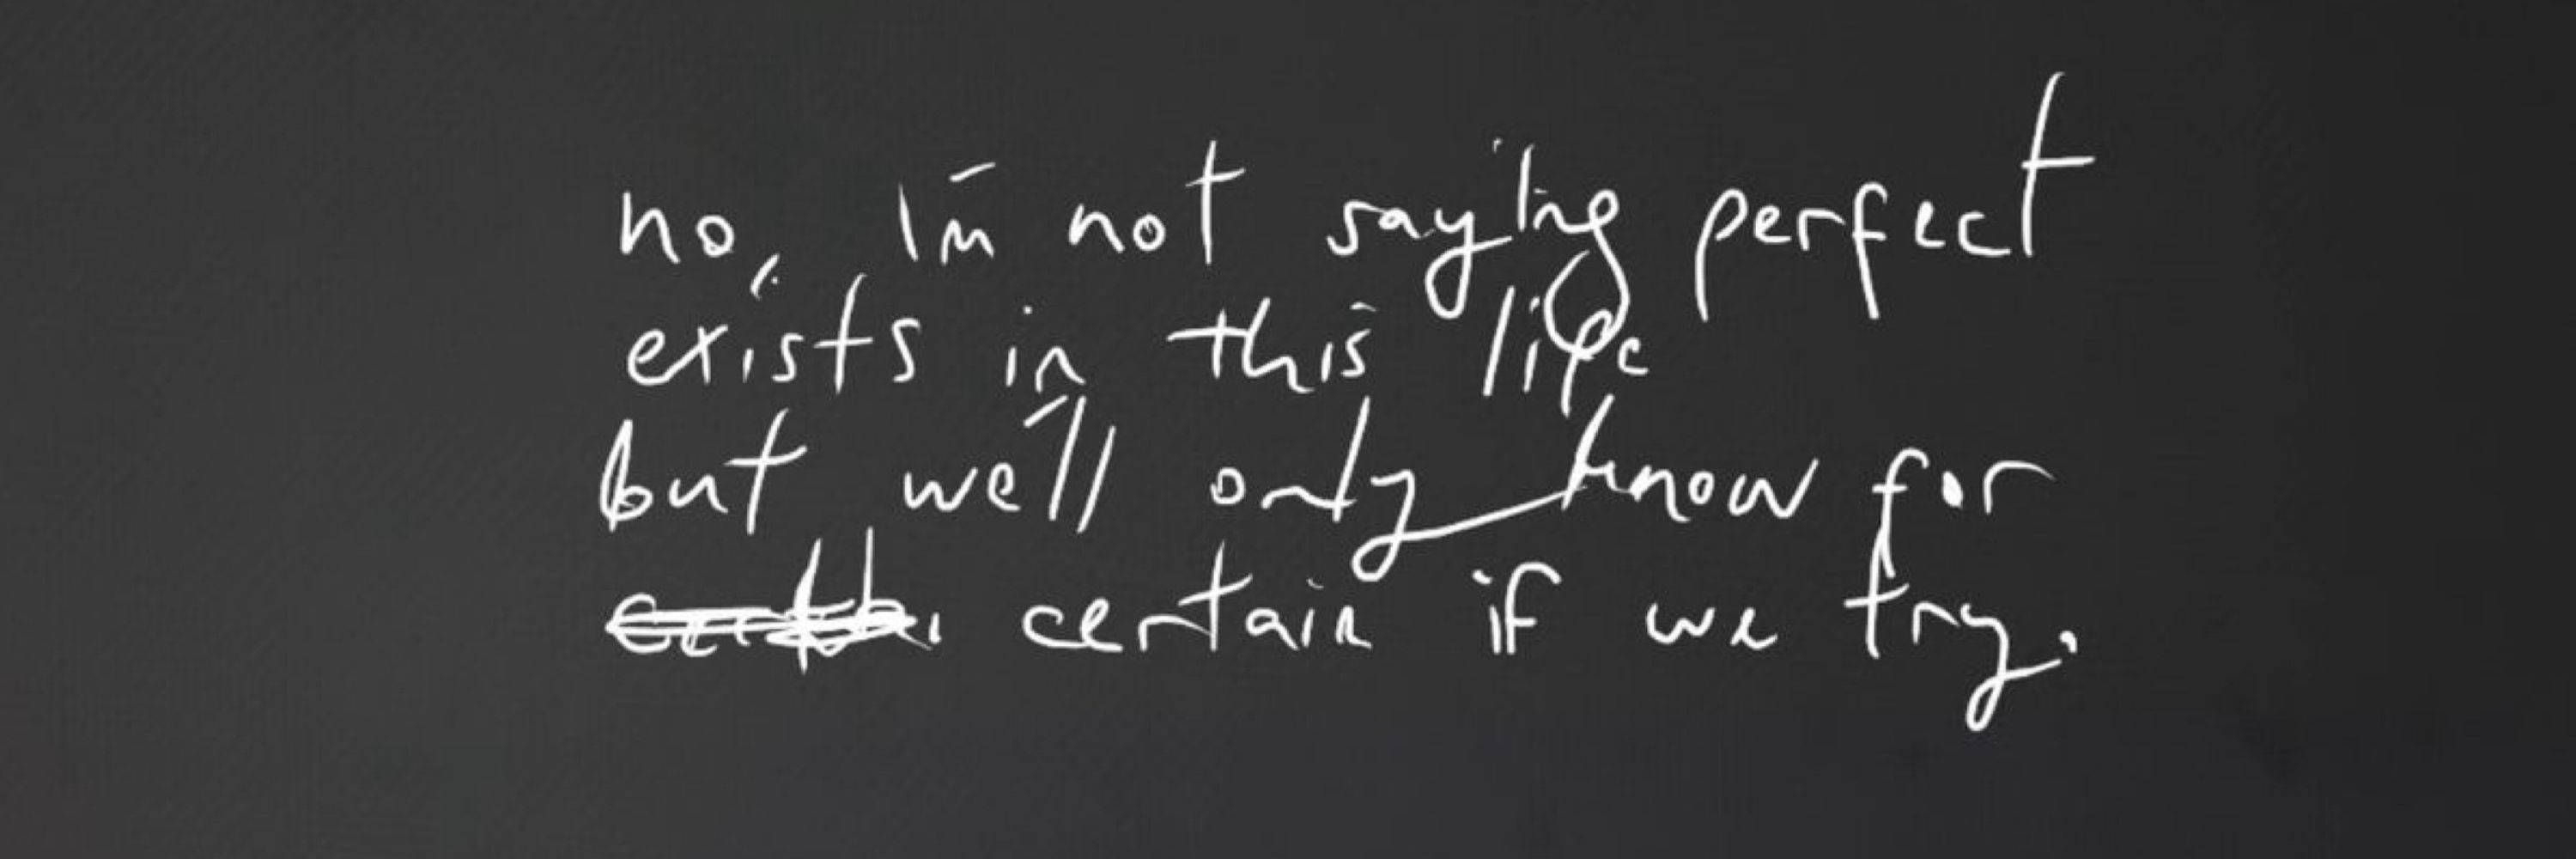 no, I'm not saying perfect
exists in this life
but we'll only know for
certain if we try.